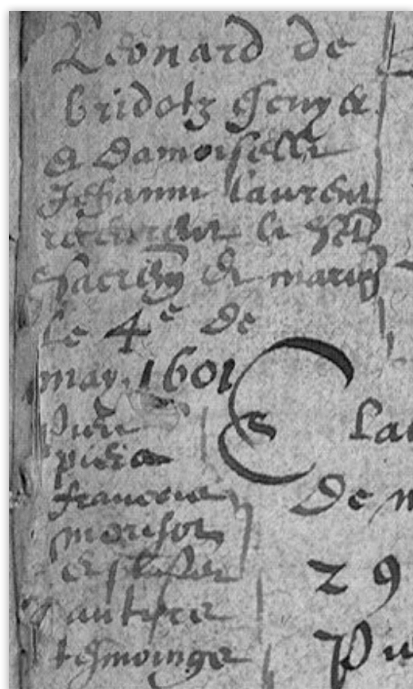 Leonard de
bridolz escuyer
et damoiselle
Jehanne laurent
receurent le st
sacrem de mariag
le 4e de
may 1601
piere
francois
morisot
et plusieurs
autyre
tesmoinge
Lau
De m
29
Pu